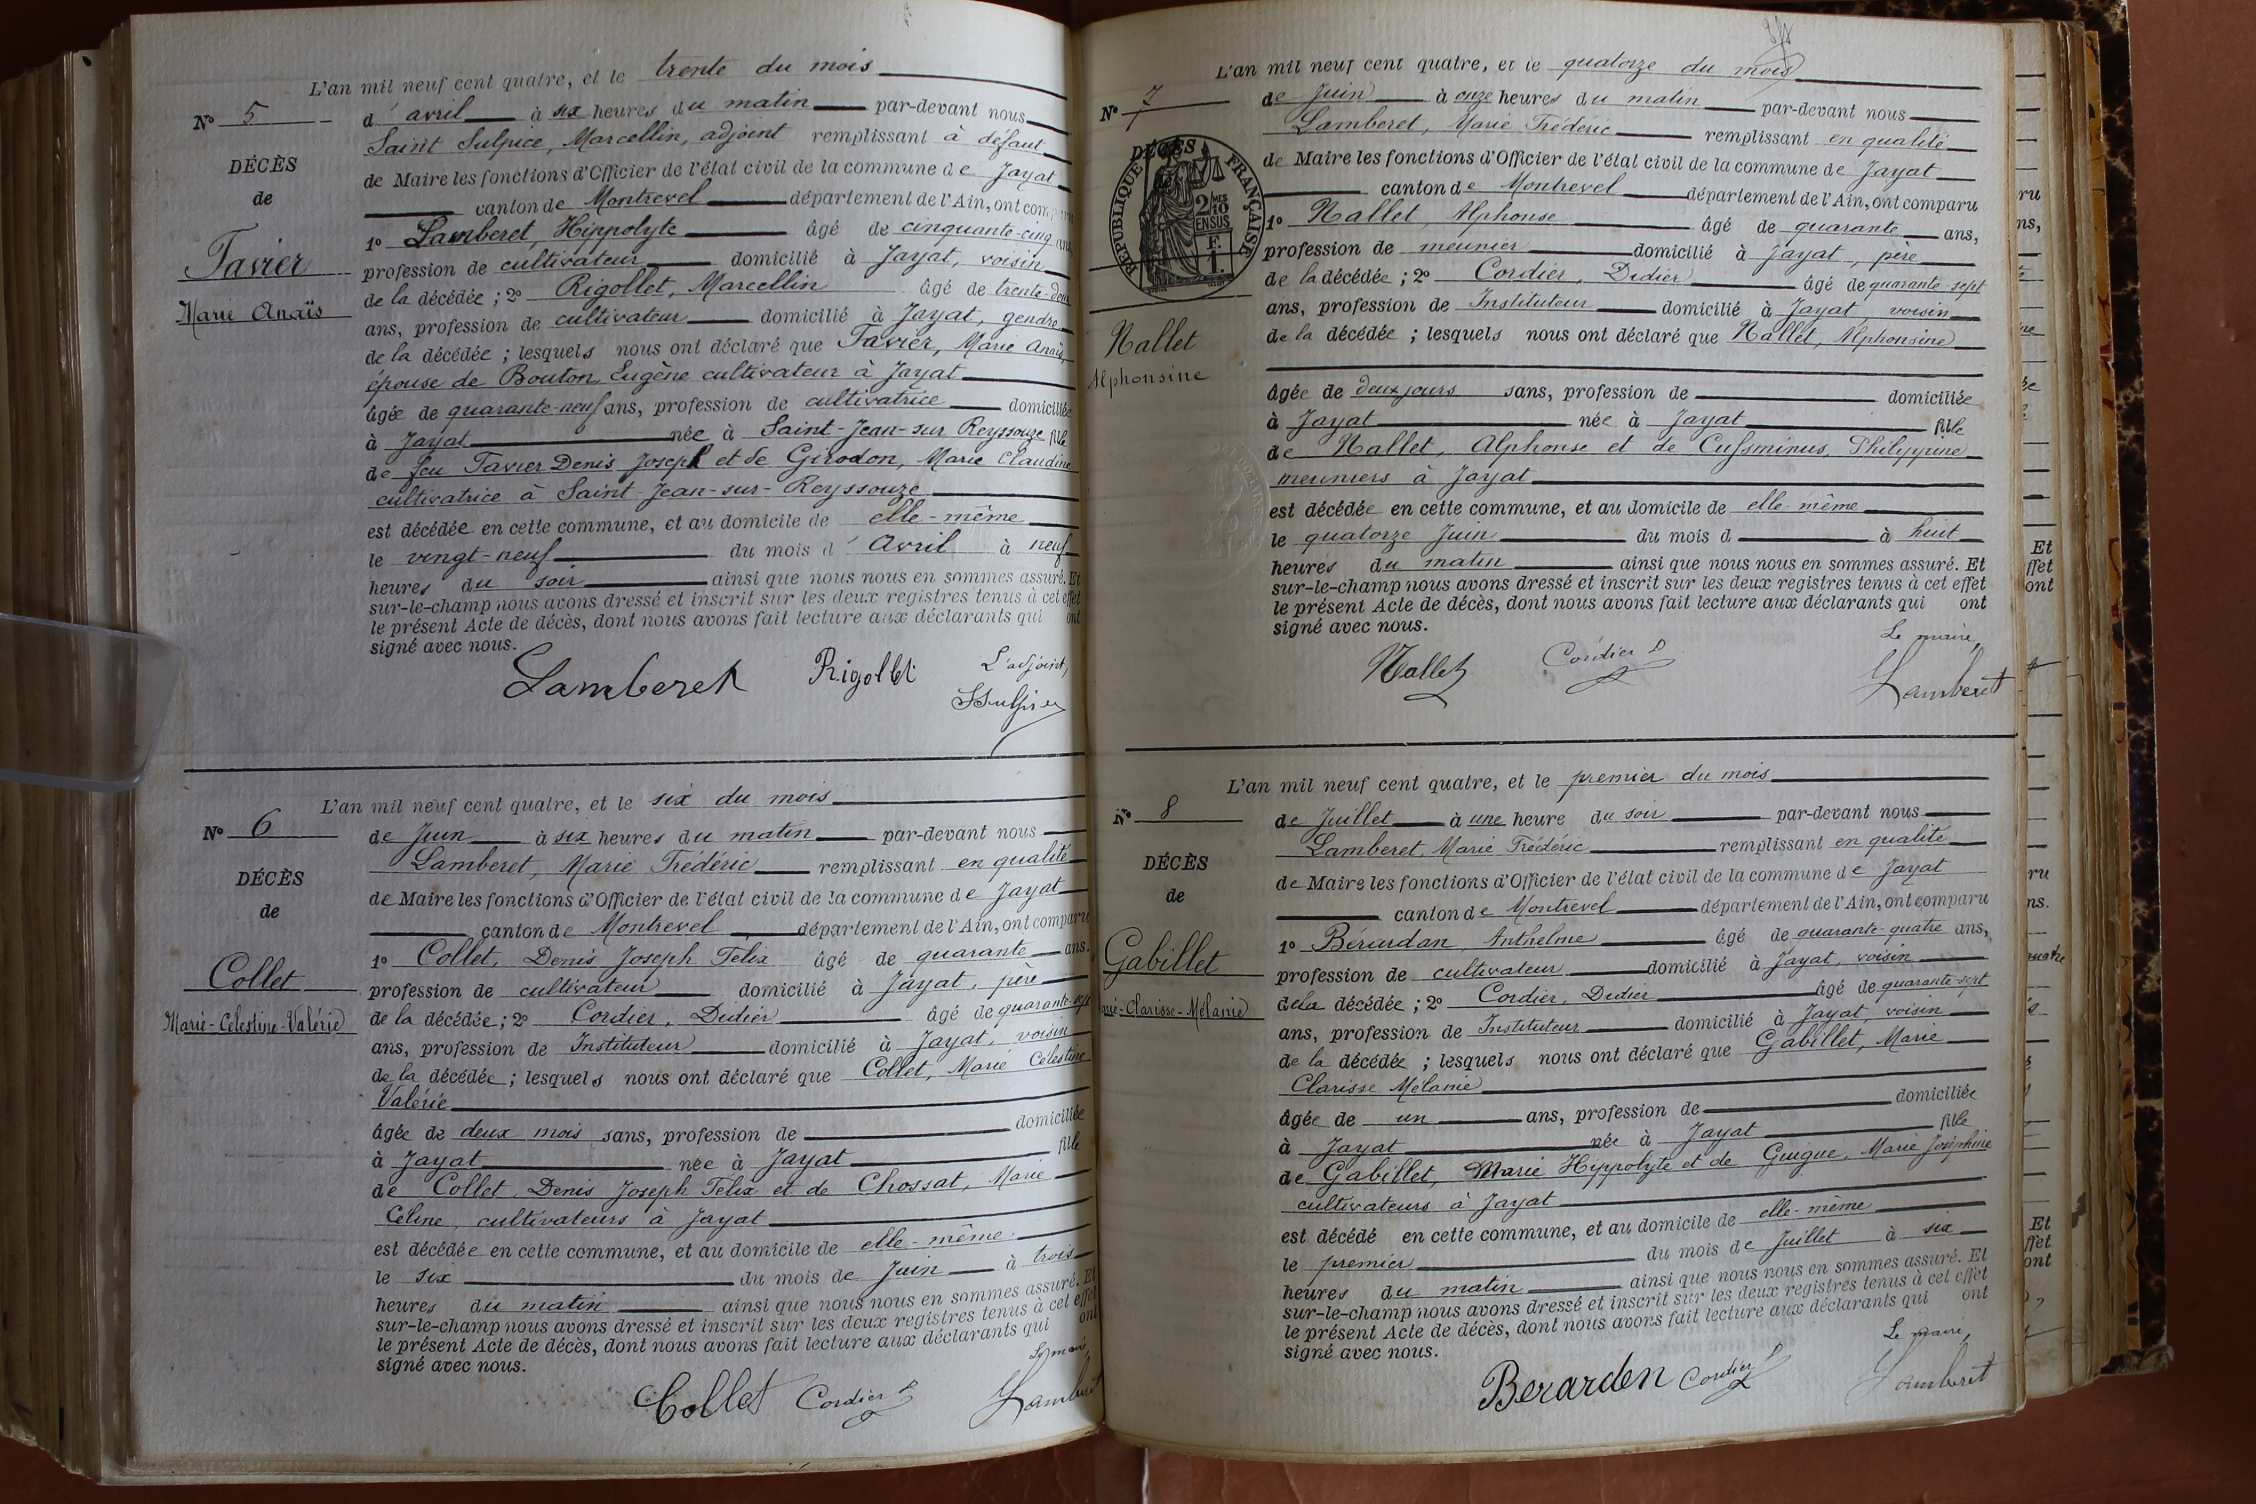 L'an mil neuf cent quatre, et le trente du mois
N° 5
d'avril à six heures du matin par-devant nous
Saint Sulpice, Marcellin, adjoint remplissant à défaut
DÉCÈS
de Maire les fonctions d'Officier de l'état civil de la commune de Jayat
de
canton de Montrevel département de l'Ain, ont comparu
1° Lamberet, Hippolyte âgé de cinquante-cinq ans,
Favier
profession de cultivateur domicilié à Jayat, voisin
de la décédée ; 2° Rigollet, Marcellin âgé de trente-deux
Marie Anaïs
ans, profession de cultivateur domicilié à Jayat, gendre
de la décédée ; lesquels nous ont déclaré que Favier, Marie Anaïs,
épouse de Bouton, Eugène cultivateur à Jayat
âgée de quarante-neuf ans, profession de cultivatrice domiciliée
à Jayat née à Saint-Jean-sur Reyssouze fille
de feu Favier Denis Joseph et de Girodon, Marie Claudine
cultivatrice à Saint-Jean-sur-Reyssouze
est décédée en cette commune, et au domicile de elle-même
le vingt-neuf du mois d'Avril à neuf
heures du soir ainsi que nous nous en sommes assuré. Et
sur-le-champ nous avons dressé et inscrit sur les deux registres tenus à cet effet
le présent Acte de décès, dont nous avons fait lecture aux déclarants qui ont
signé avec nous.
Lamberet Rigollet L'adjoint,
SSulpice
L'an mil neuf cent quatre, et le six du mois
N° 6
de Juin à six heures du matin par-devant nous
Lamberet, Marie Frédéric remplissant en qualité
DÉCÈS
de Maire les fonctions d'Officier de l'état civil de la commune de Jayat
de
canton de Montrevel département de l'Ain, ont comparu
1° Collet, Denis Joseph Felix âgé de quarante ans.
Collet
profession de cultivateur domicilié à Jayat, père
Marie-Célestine-Valérie
de la décédée ; 2° Cordier, Didier âgé de quarante-sept
ans, profession de Instituteur domicilié à Jayat, voisin
de la décédée ; lesquels nous ont déclaré que Collet, Marie Célestine
Valérie
âgée de deux mois sans, profession de domiciliée
à Jayat née à Jayat fille
de Collet, Denis Joseph Felix et de Chossat, Marie
Céline, cultivateurs à Jayat
est décédée en cette commune, et au domicile de elle-même
le six du mois de Juin à trois
heures du matin ainsi que nous nous en sommes assuré. Et
sur-le-champ nous avons dressé et inscrit sur les deux registres tenus à cet effet
le présent Acte de décès, dont nous avons fait lecture aux déclarants qui ont
signé avec nous.
Le maire,
Collet Cordier D Lamberet
L'an mil neuf cent quatre, et le quatorze du mois
N° 7
de Juin à onze heures du matin par-devant nous
Lamberet, Marie Frédéric remplissant en qualité
DÉCÈS
RÉPUBLIQUE FRANÇAISE
2/10 EN SUS
de Maire les fonctions d'Officier de l'état civil de la commune de Jayat
canton de Montrevel département de l'Ain, ont comparu
1° Nallet, Alphonse âgé de quarante ans,
profession de meunier domicilié à Jayat, père
de la décédée ; 2° Cordier, Didier âgé de quarante-sept
ans, profession de Instituteur domicilié à Jayat, voisin
Nallet
de la décédée ; lesquels nous ont déclaré que Nallet, Alphonsine
Alphonsine
âgée de deux jours sans, profession de domiciliée
à Jayat née à Jayat fille
de Nallet, Alphonse et de Cussminus, Philippine
meuniers à Jayat
est décédée en cette commune, et au domicile de elle-même
le quatorze Juin du mois d à huit
heures du matin ainsi que nous nous en sommes assuré. Et
sur-le-champ nous avons dressé et inscrit sur les deux registres tenus à cet effet
le présent Acte de décès, dont nous avons fait lecture aux déclarants qui ont
signé avec nous.
Le maire,
Nallet Cordier D Lamberet
L'an mil neuf cent quatre, et le premier du mois
N° 8
de Juillet à une heure du soir par-devant nous
Lamberet, Marie Frédéric remplissant en qualité
DÉCÈS
de Maire les fonctions d'Officier de l'état civil de la commune de Jayat
de
canton de Montrevel département de l'Ain, ont comparu
1° Anthelme âgé de quarante-quatre ans,
Gabillet
profession de cultivateur domicilié à Jayat, voisin
-Clarisse-Mélanie
de la décédée ; 2° Cordier, Didier âgé de quarante-sept
ans, profession de Instituteur domicilié à Jayat, voisin
de la décédée ; lesquels nous ont déclaré que Gabillet, Marie
Clarisse Mélanie
âgée de un ans, profession de domiciliée
à Jayat née à Jayat fille
de Gabillet, Marie Hippolyte et de Guigue, Marie Joséphine
cultivateurs à Jayat
est décédé en cette commune, et au domicile de elle-même
le premier du mois de Juillet à six
heures du matin ainsi que nous nous en sommes assuré. Et
sur-le-champ nous avons dressé et inscrit sur les deux registres tenus à cet effet
le présent Acte de décès, dont nous avons fait lecture aux déclarants qui ont
signé avec nous.
Le maire,
Berarden Cordier D Lamberet